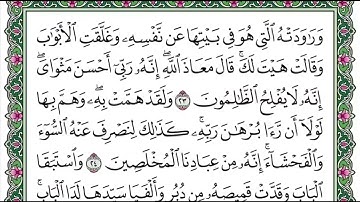 وَرَٰوَدَتْهُ ٱلَّتِى هُوَ فِى بَيْتِهَا عَن نَّفْسِهِۦ وَغَلَّقَتِ ٱلْأَبْوَٰبَ
وَقَالَتْ هَيْتَ لَكَ ۚ قَالَ مَعَاذَ ٱللَّهِ ۖ إِنَّهُۥ رَبِّىٓ أَحْسَنَ مَثْوَاىَ ۖ
إِنَّهُۥ لَا يُفْلِحُ ٱلظَّٰلِمُونَ ٢٣ وَلَقَدْ هَمَّتْ بِهِۦ ۖ وَهَمَّ بِهَا
لَوْلَآ أَن رَّءَا بُرْهَٰنَ رَبِّهِۦ ۚ كَذَٰلِكَ لِنَصْرِفَ عَنْهُ ٱلسُّوٓءَ
وَٱلْفَحْشَآءَ ۚ إِنَّهُۥ مِنْ عِبَادِنَا ٱلْمُخْلَصِينَ ٢٤ وَٱسْتَبَقَا
ٱلْبَابَ وَقَدَّتْ قَمِيصَهُۥ مِن دُبُرٍ وَأَلْفَيَا سَيِّدَهَا لَدَا ٱلْبَابِ ۚ